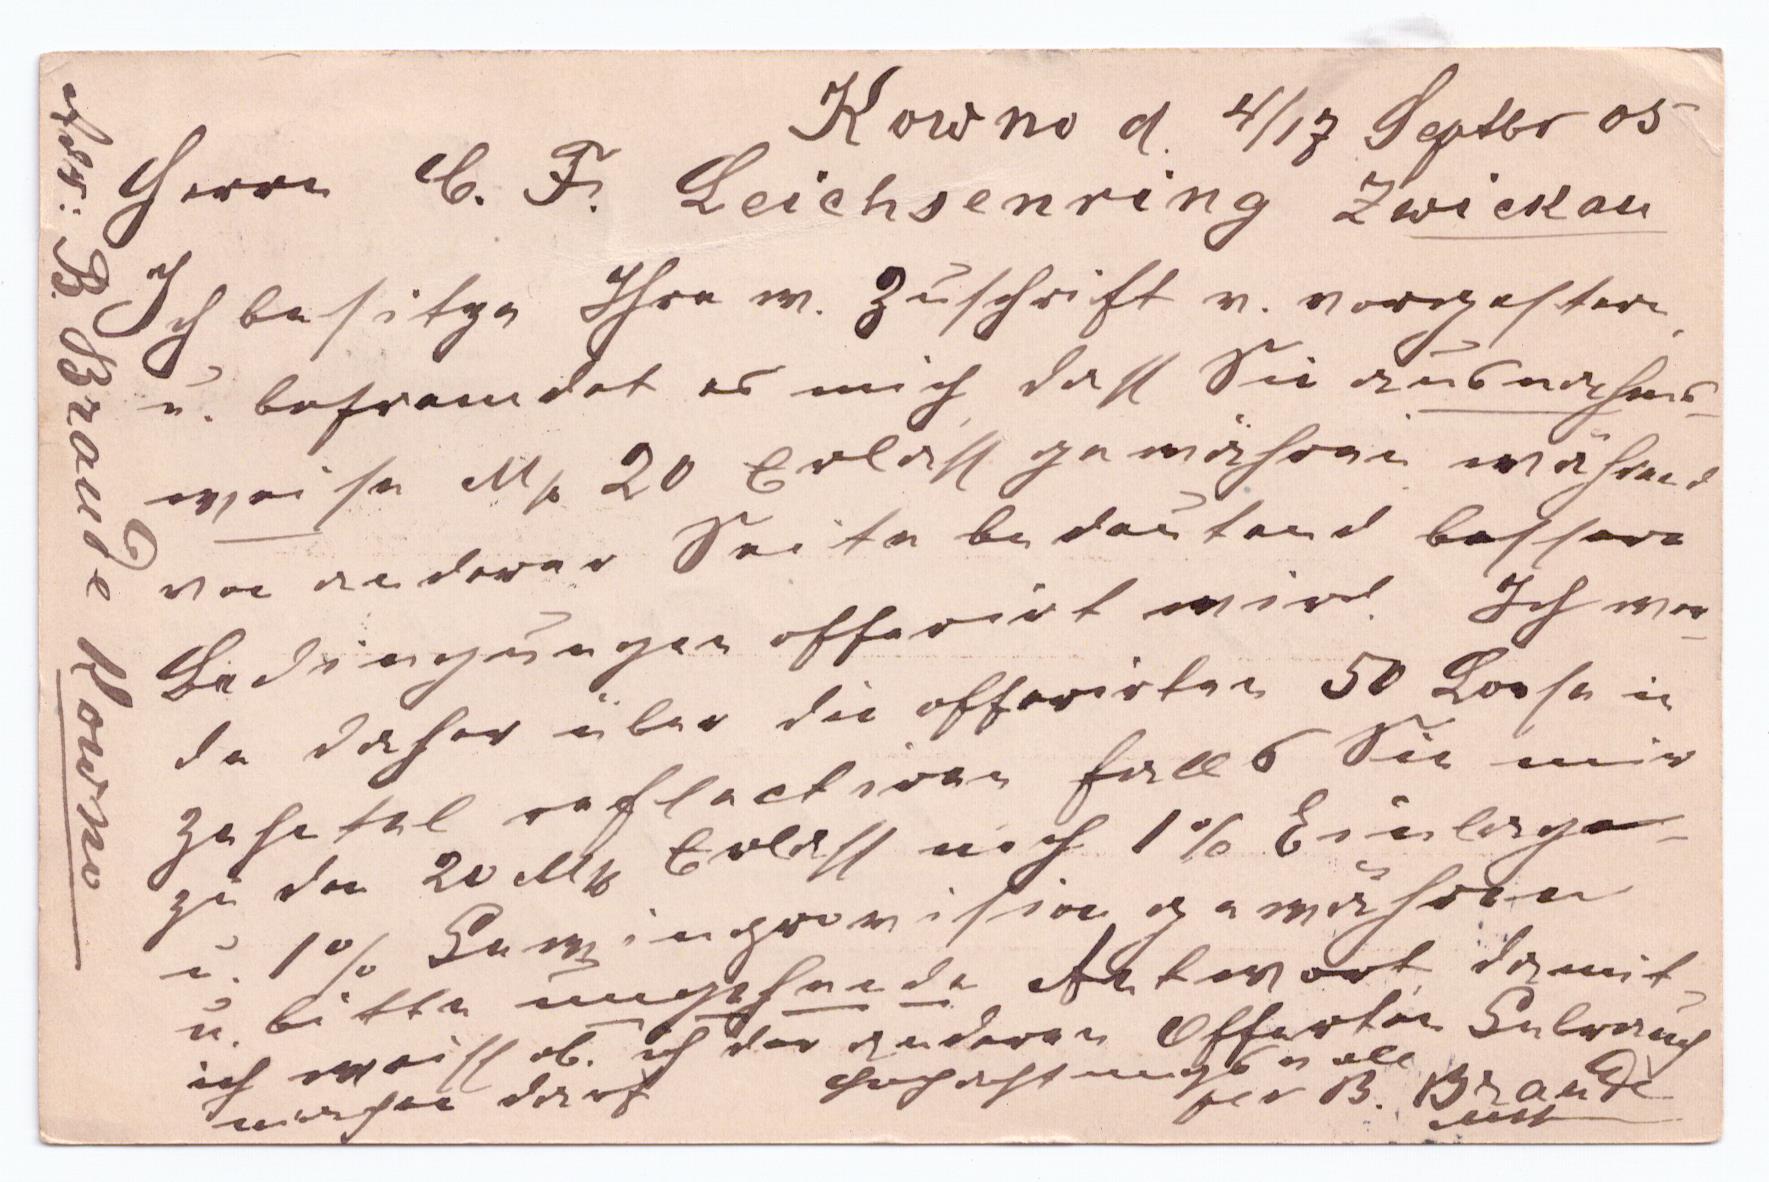 Kowno d. 4/17 Septbr 05
Herrn C. F. Leichsenring Zwickau
Ich besitze Ihre w. Zuschrift v. vorgestern,
u. befremdet es mich dass Sie ausnahms-
weise Mk 20 Erlass gewähren während
von anderer Seite bedeutend bessere
Bedingungen offerirt wird. Ich wer-
de daher über die offerirten 50 Loose in
Zehntel reflectiren falls Sie mir
zu den 20 Mk Erlass noch 1% Einlage-
u. 1% Gewinprovision gewähren
u. bitte umgehende Antwort, damit
ich weiss ob ich der anderen Offerten Gebrauch
machen darf hochachtungsvoll
per B. Braude
Adr: B. Braude Kowno